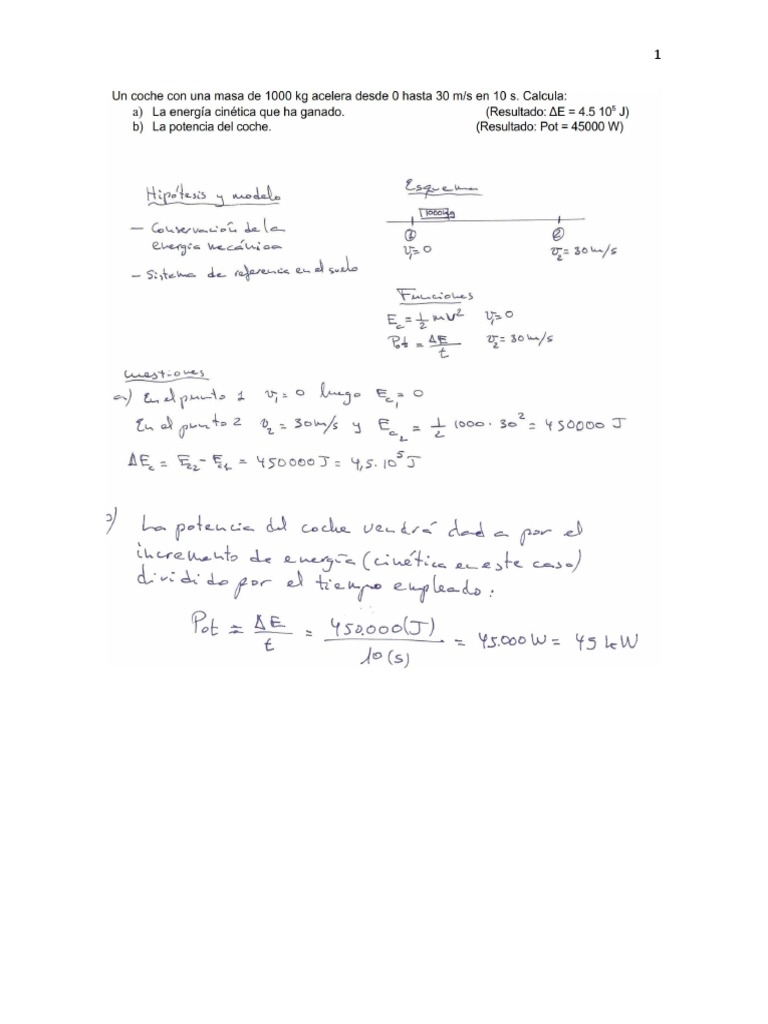 1
Un coche con una masa de 1000 kg acelera desde 0 hasta 30 m/s en 10 s. Calcula:
a) La energía cinética que ha ganado. (Resultado: ΔE = 4.5 10⁵ J)
b) La potencia del coche. (Resultado: Pot = 45000 W)
Hipótesis y modelo
- Conservación de la
energía mecánica
- Sistema de referencia en el suelo
Esquema
1000kg
① ②
v₁=0 v₂=30m/s
Funciones
E_c = 1/2 mv² v₁=0
Pot = ΔE/t v₂=30m/s
Cuestiones
a) En el punto 1 v₁=0 luego E_c₁=0
En el punto 2 v₂=30m/s y E_c₂ = 1/2 1000·30² = 450000 J
ΔE_c = E_c2 - E_c1 = 450000J = 4,5·10⁵J
) La potencia del coche vendrá dada por el
incremento de energía (cinética en este caso)
dividido por el tiempo empleado:
Pot = ΔE/t = 450.000(J)/10(s) = 45.000W = 45 kW